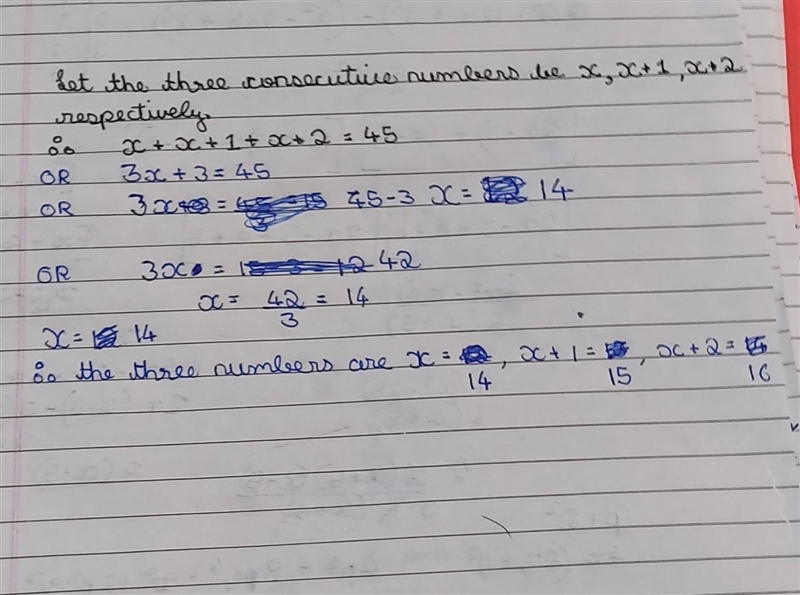 Let the three consecutive numbers be x, x+1, x+2
respectively.
∴ x + x + 1 + x + 2 = 45
OR 3x + 3 = 45
OR 3x = 45-3 x = 14
OR 3x = 42
x = 42/3 = 14
x = 14
∴ the three numbers are x = , x+1 = , x+2 =
14 15 16